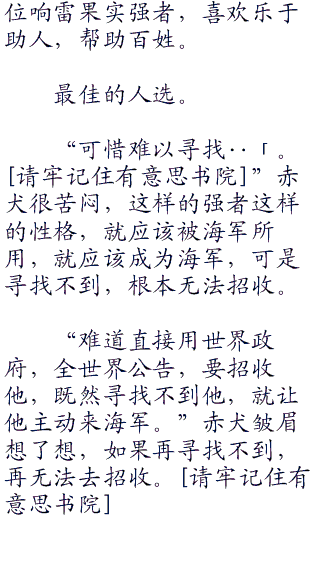 位响雷果实强者，喜欢乐于
助人，帮助百姓。
最佳的人选。
“可惜难以寻找··「。
[请牢记住有意思书院]”赤
犬很苦闷，这样的强者这样
的性格，就应该被海军所
用，就应该成为海军，可是
寻找不到，根本无法招收。
“难道直接用世界政
府，全世界公告，要招收
他，既然寻找不到他，就让
他主动来海军。”赤犬皱眉
想了想，如果再寻找不到，
再无法去招收。[请牢记住有
意思书院]